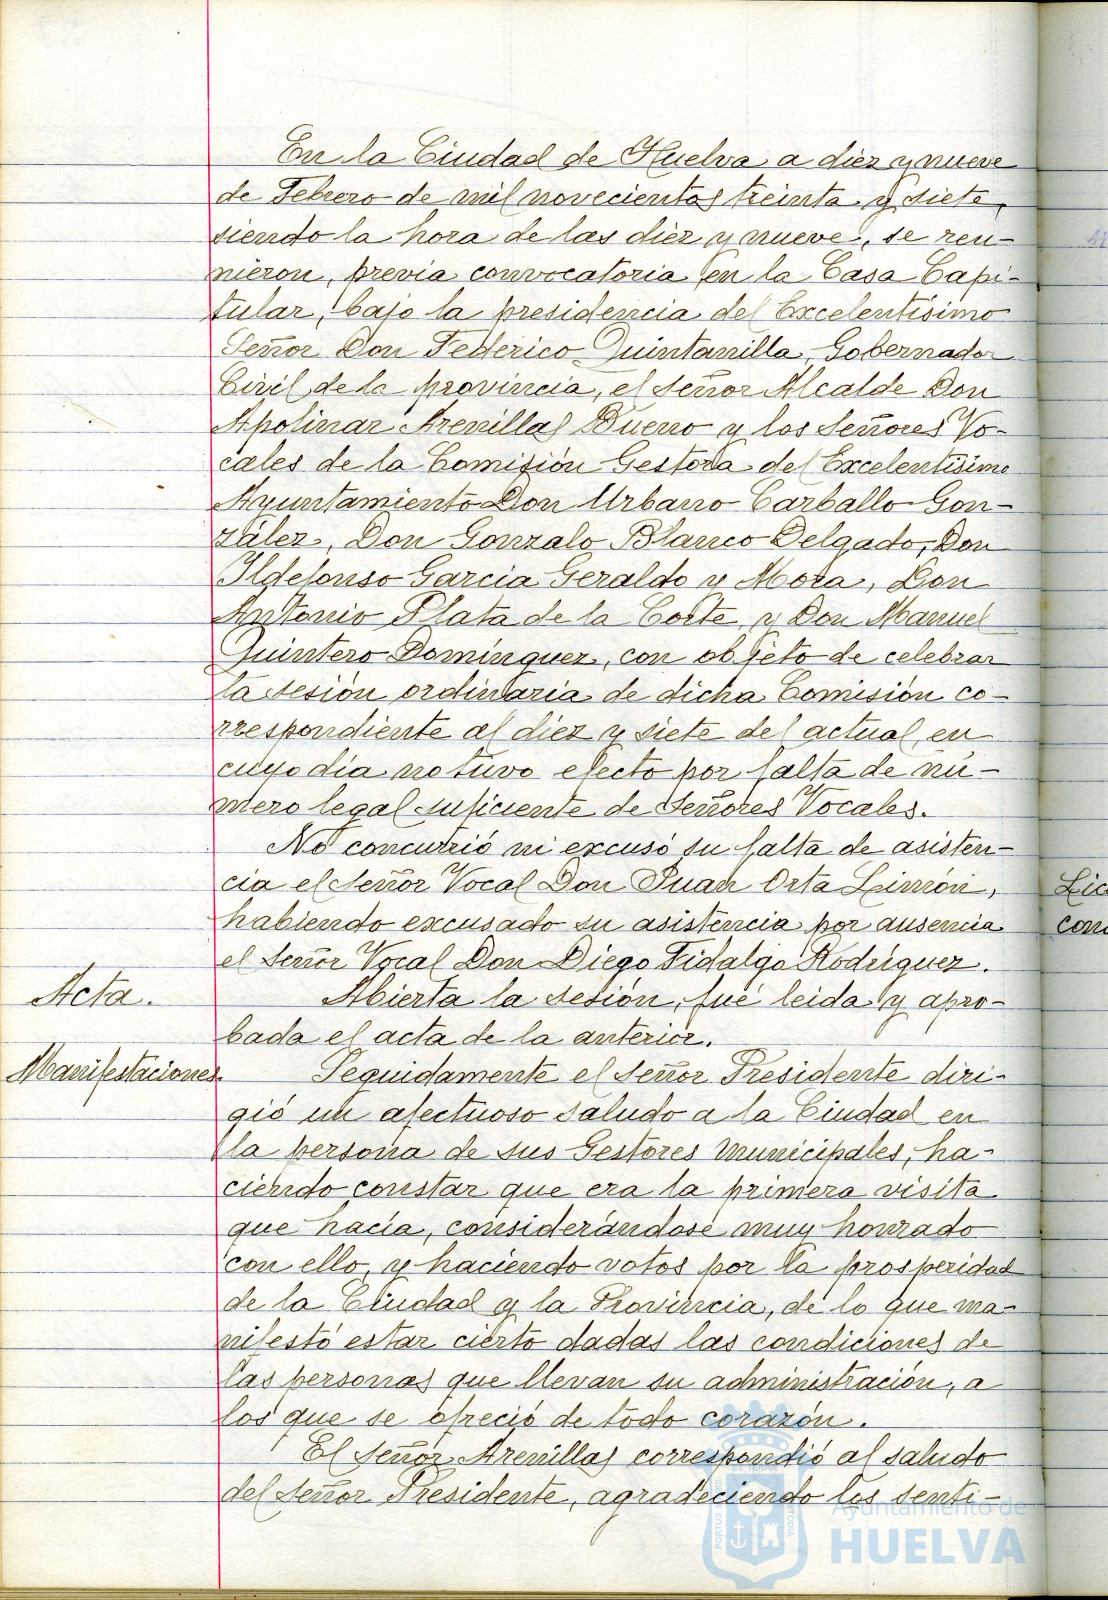 En la Ciudad de Huelva a diez y nueve
de Febrero de mil novecientos treinta y siete,
siendo la hora de las diez y nueve, se reu-
nieron, previa convocatoria en la Casa Capi-
tular, bajo la presidencia del Excelentísimo
Señor Don Federico Quintanilla, Gobernador
Civil de la provincia, el señor Alcalde Don
Apolinar Arenillas Bueno y los Señores Vo-
cales de la Comisión Gestora del Excelentísimo
Ayuntamiento Don Urbano Carballo Gon-
zález, Don Gonzalo Blanco Delgado, Don
Ildefonso García Geraldo y Mora, Don
Antonio Plata de la Corte, y Don Manuel
Quintero Domínguez, con objeto de celebrar
la sesión ordinaria de dicha Comisión co-
rrespondiente al diez y siete del actual, en
cuyo día no tuvo efecto por falta de nú-
mero legal suficiente de Señores Vocales.
No concurrió ni excusó su falta de asisten-
cia el Señor Vocal Don Juan Orta Limón,
habiendo excusado su asistencia por ausencia
el Señor Vocal Don Diego Fidalgo Rodríguez.
Acta. Abierta la sesión, fué leida y apro-
bada el acta de la anterior.
Manifestaciones. Seguidamente el Señor Presidente diri-
gió un afectuoso saludo a la Ciudad en
la persona de sus Gestores Municipales, ha-
ciendo constar que era la primera visita
que hacía, considerándose muy honrado
con ello, y haciendo votos por la prosperidad
de la Ciudad y la Provincia, de lo que ma-
nifestó estar cierto dadas las condiciones de
las personas que llevan su administración, a
los que se ofreció de todo corazón.
El Señor Arenillas correspondió al saludo
del Señor Presidente, agradeciendo los senti-
Ayuntamiento de
HUELVA